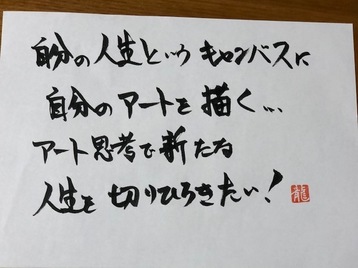 自分の人生というキャンバスに
自分のアートを描く...
アート思考で新たな
人生を切りひろきたい！
龍